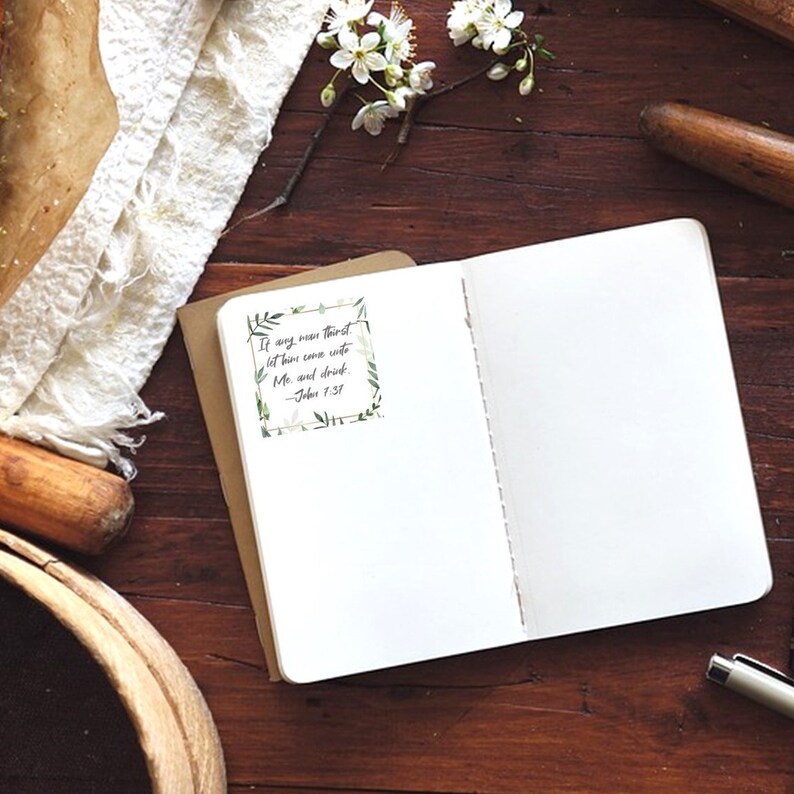 If any man thirst,
let him come unto
Me, and drink.
—John 7:37